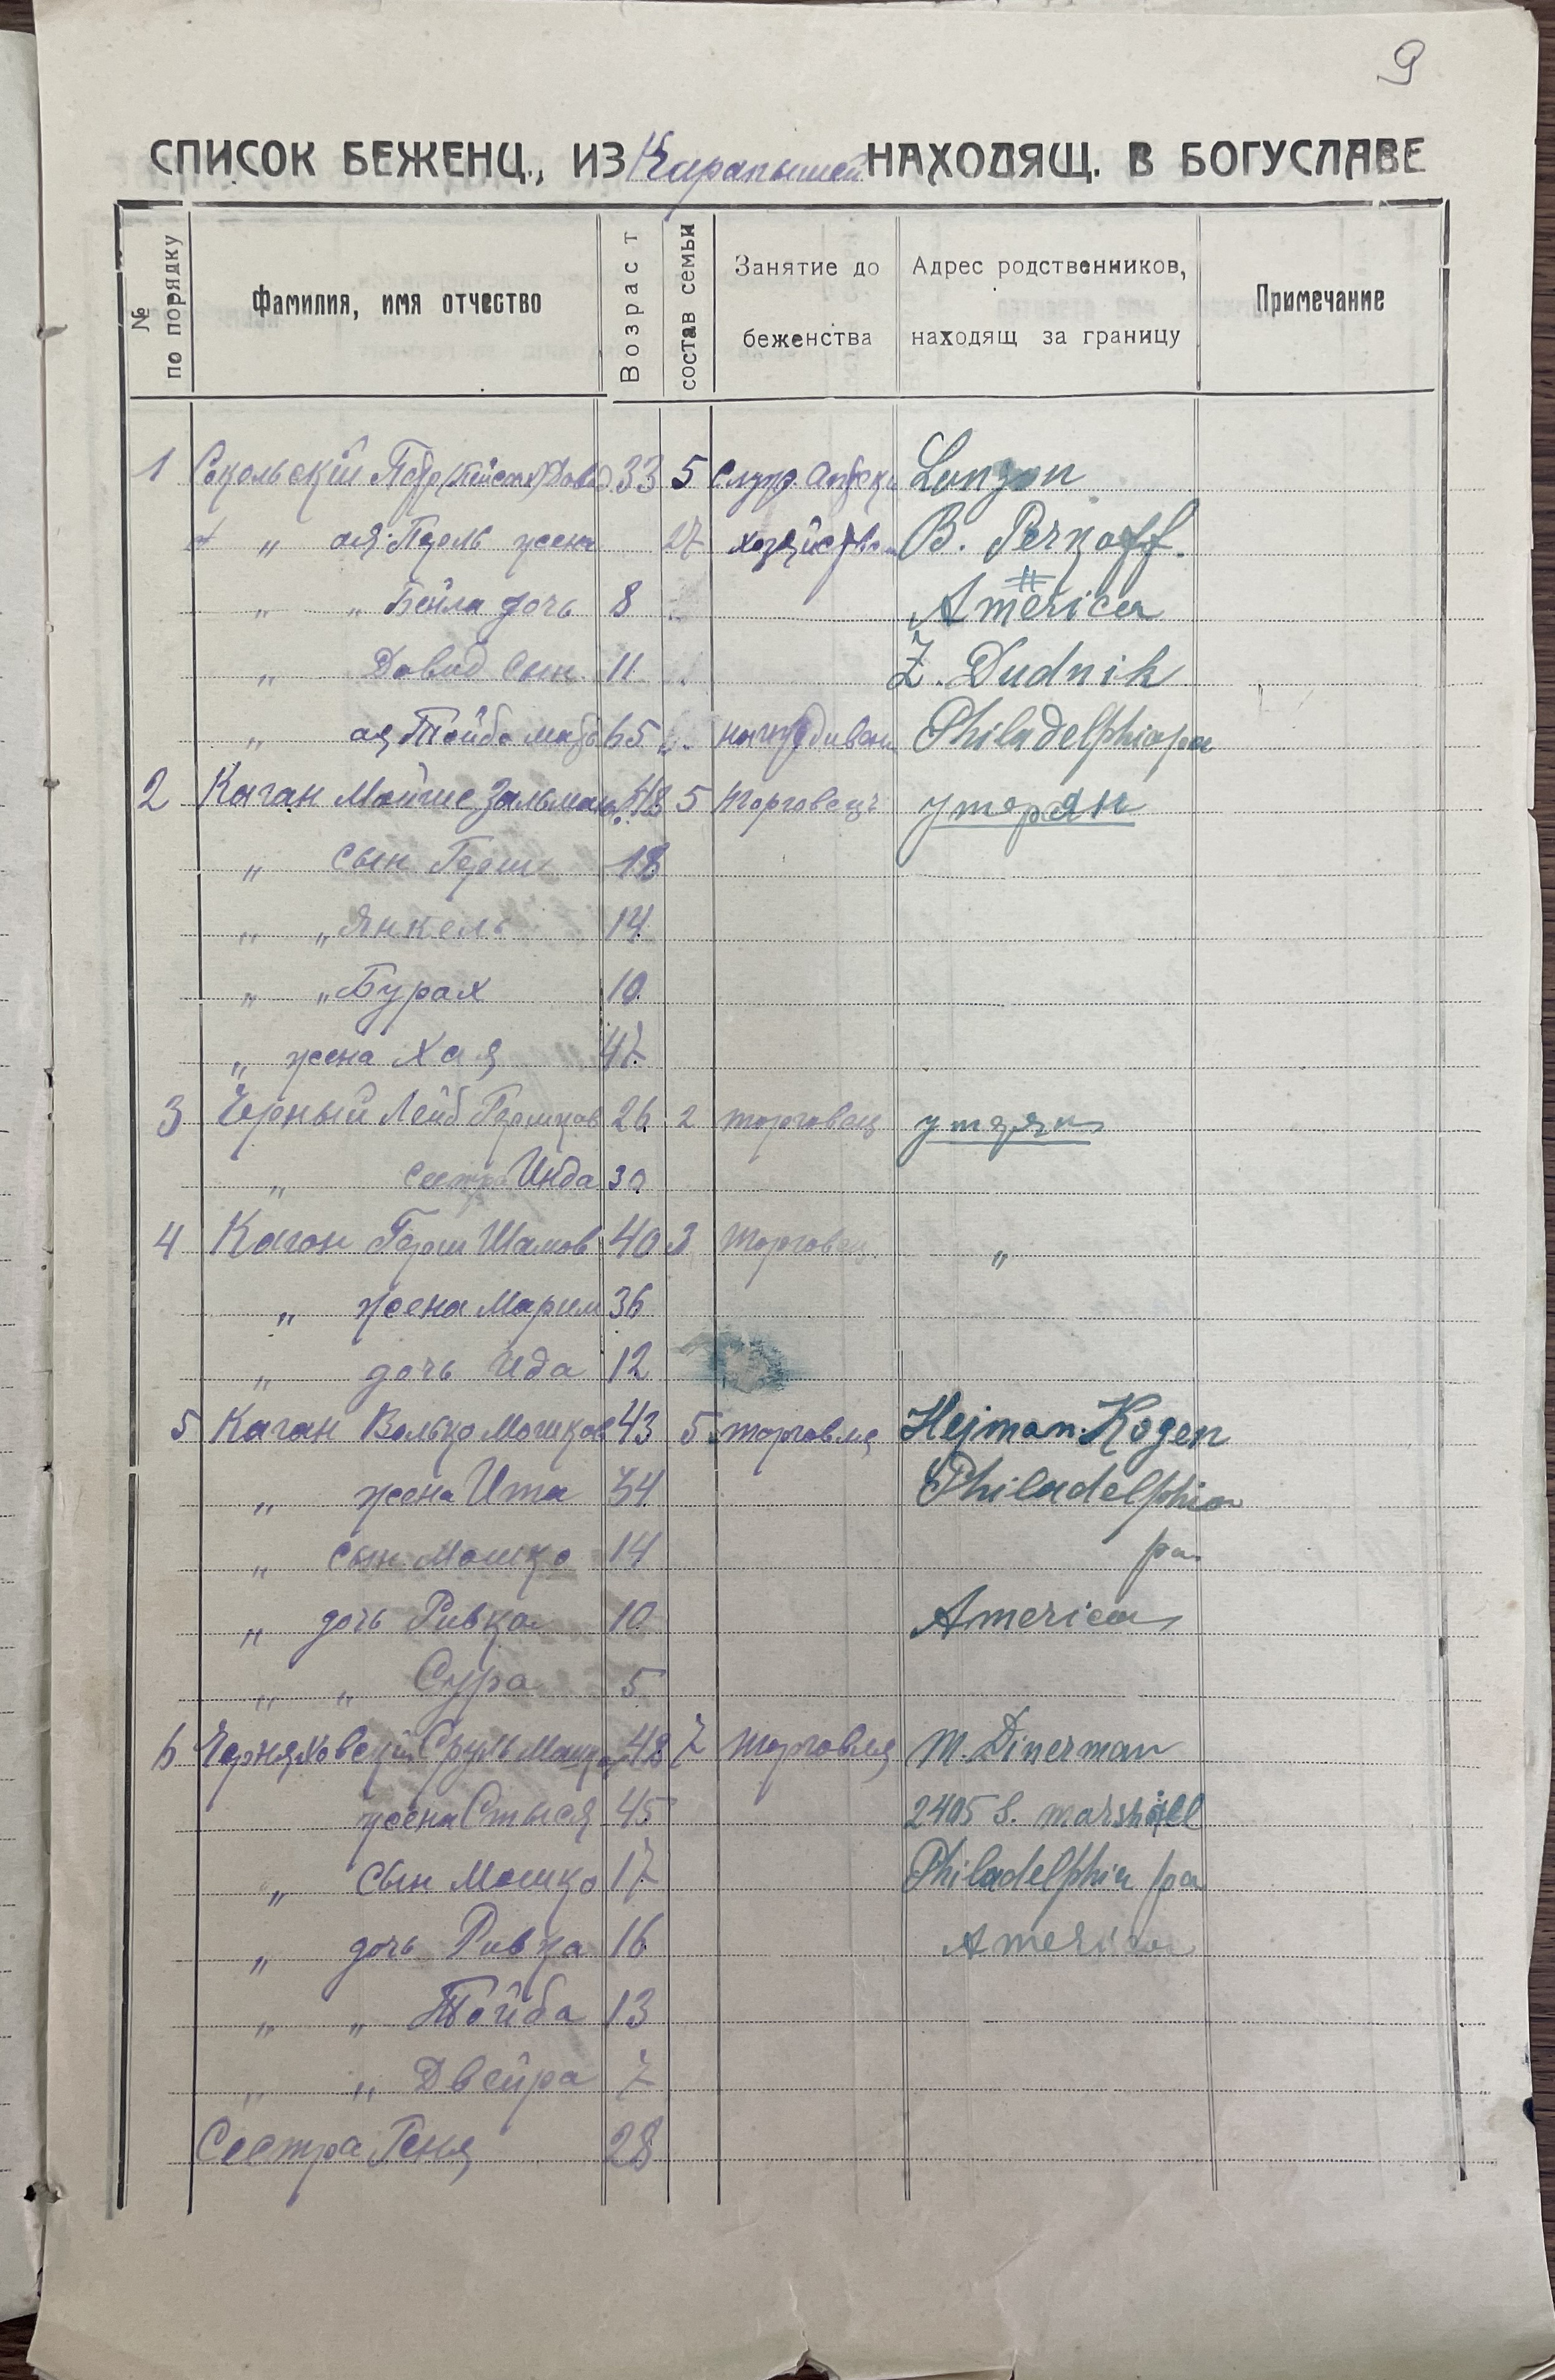 9
СПИСОК БЕЖЕНЦ., ИЗ Карапышей НАХОДЯЩ. В БОГУСЛАВЕ
№ по порядку Фамилия, имя отчество Возраст состав семьи Занятие до беженства Адрес родственников, находящ за границу Примечание
1 Сокольский Давид 33 5 London
" ая Перль жена 27 хозяйство B. Perkoff.
" " Бейла дочь 8 America
" Давид сын 11 Z. Dudnik
" ая Тойба мать 65 Philadelphia pa
2 Каган Мойше Зальман. 48 5 торговецъ утерян
" сын Герш 18
" " Янкель 14
" " Бурах 10
" жена Хая 47
3 Черный Лейб Гершков 26 2 торговец утерян
" сестра Инда 30
4 Каган Герш Шамов 40 3 торговец "
" жена Марим 36
" дочь Ида 12
5 Каган Волько Мошков 43 5 торговля Hejman. Kogen
" жена Ита 34 Philadelphia
" сын Мошко 14 pa
" дочь Ривка 10 America
" " Сура 5
6 Черняховский Сруль Мошков 48 7 торговля M. Dinerman
жена Стыся 45 2405 S. marshall
" сын Мошко 17 Philadelphia pa
" дочь Ривка 16 America
" " Тойба 13
" " Двейра 7
Сестра Геня 28